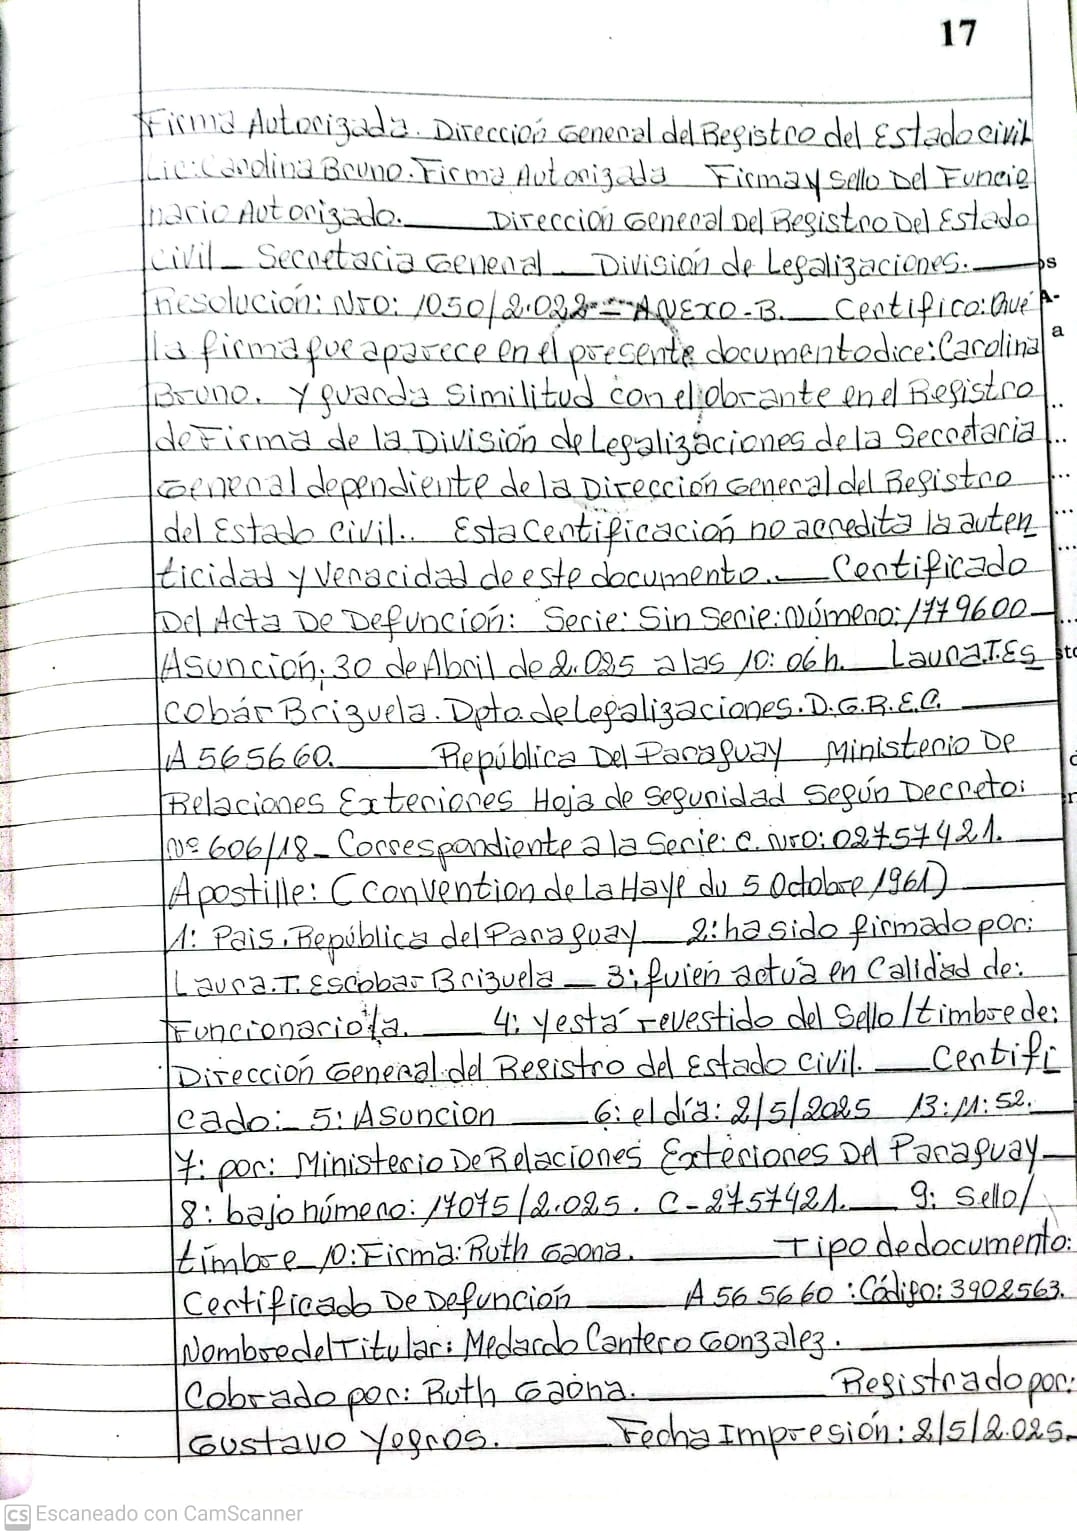 17
Firma Autorizada. Dirección General del Registro del Estado civil
Lic: Carolina Bruno. Firma Autorizada Firma y Sello Del Funcio
nario Autorizado. Dirección General Del Registro Del Estado
civil_ Secretaria General _ División de Legalizaciones.
Resolución: Nro: 1050/2.022 = ANEXO-B. Certifico: Qué
la firma que aparece en el presente documento dice: Carolina
Bruno. y guarda Similitud con el obrante en el Registro
de Firma de la División de Legalizaciones de la Secretaria
General dependiente de la Dirección General del Registro
del Estado Civil.. Esta Certificación no acredita la auten
ticidad y veracidad de este documento. Certificado
Del Acta De Defunción: Serie: Sin Serie: Número: 1779600
Asunción; 30 de Abril de 2.025 a las 10:06h. Laura.T.Es
cobár Brizuela. Dpto. de Legalizaciones. D.G.R.E.C.
A 565660. República Del Paraguay Ministerio De
Relaciones Exteriores Hoja de Seguridad Según Decreto:
Nº 606/18_ Correspondiente a la Serie: C. Nro: 02757421.
Apostille: (Convention de La Haye du 5 Octobre 1961)
1: Pais. República del Paraguay 2: ha sido firmado por:
Laura.T. Escobar Brizuela _ 3: quien actúa en Calidad de:
Funcionario/a. 4: y está revestido del Sello/timbre de:
Dirección General del Registro del Estado civil. Certifi
cado:_ 5: Asuncion 6: el día: 2/5/2025 13:11:52.
7: por: Ministerio De Relaciones Exteriores Del Paraguay
8: bajo número: 17075/2.025. C-2757421. 9: Sello/
timbre_ 10: Firma: Ruth Gaona. Tipo de documento:
Certificado De Defunción A 565660: Código: 3902563.
Nombre del Titular: Medardo Cantero Gonzalez.
Cobrado por: Ruth Gaona. Registrado por:
Gustavo Yegros. Fecha Impresión: 2/5/2.025.
CS Escaneado con CamScanner